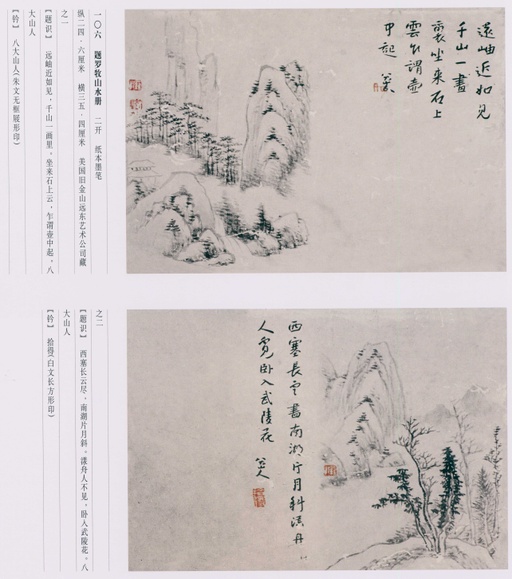 遠岫近如見
千山一畫
裏坐來石上
雲乍謂壺
中起 八大山人
一〇六 题罗牧山水册 二开 纸本墨笔
纵二四·六厘米 横三五·四厘米 美国旧金山远东艺术公司藏
之一
【题识】 远岫近如见，千山一画里。坐来石上云，乍谓壶中起。八
大山人
【钤】 八大山人（朱文无框屐形印）
西塞長雲盡南湖片月斜漾舟
人不見卧入武陵花 八大山人
之二
【题识】 西塞长云尽，南湖片月斜。漾舟人不见，卧入武陵花。八
大山人
【钤】 拾得（白文长方形印）